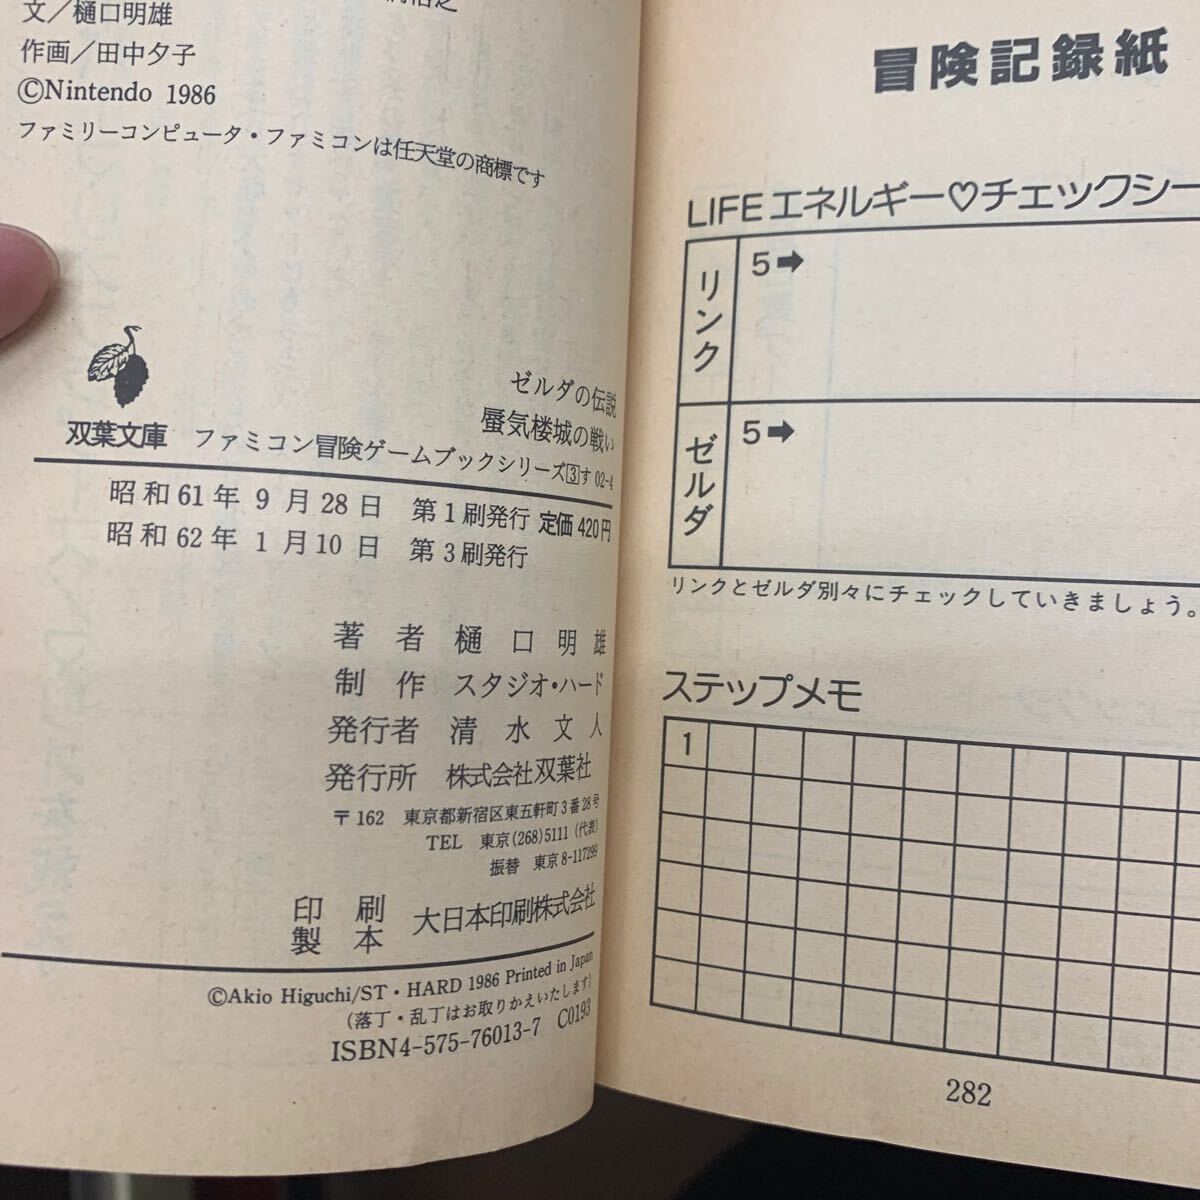 文／樋口明雄
作画／田中夕子
©Nintendo 1986
ファミリーコンピュータ・ファミコンは任天堂の商標です
双葉文庫
ゼルダの伝説
蜃気楼城の戦い
ファミコン冒険ゲームブックシリーズ3す02-4
昭和61年9月28日 第1刷発行 定価420円
昭和62年1月10日 第3刷発行
著者 樋口明雄
制作 スタジオ・ハード
発行者 清水文人
発行所 株式会社双葉社
〒162 東京都新宿区東五軒町3番28号
TEL 東京(268)5111(代表)
振替 東京8-117299
印刷
製本 大日本印刷株式会社
©Akio Higuchi/ST・HARD 1986 Printed in Japan
(落丁・乱丁はお取りかえいたします)
ISBN4-575-76013-7 C0193
冒険記録紙
LIFEエネルギー♡チェックシー
リンク 5➡
ゼルダ 5➡
リンクとゼルダ別々にチェックしていきましょう。
ステップメモ
1
282